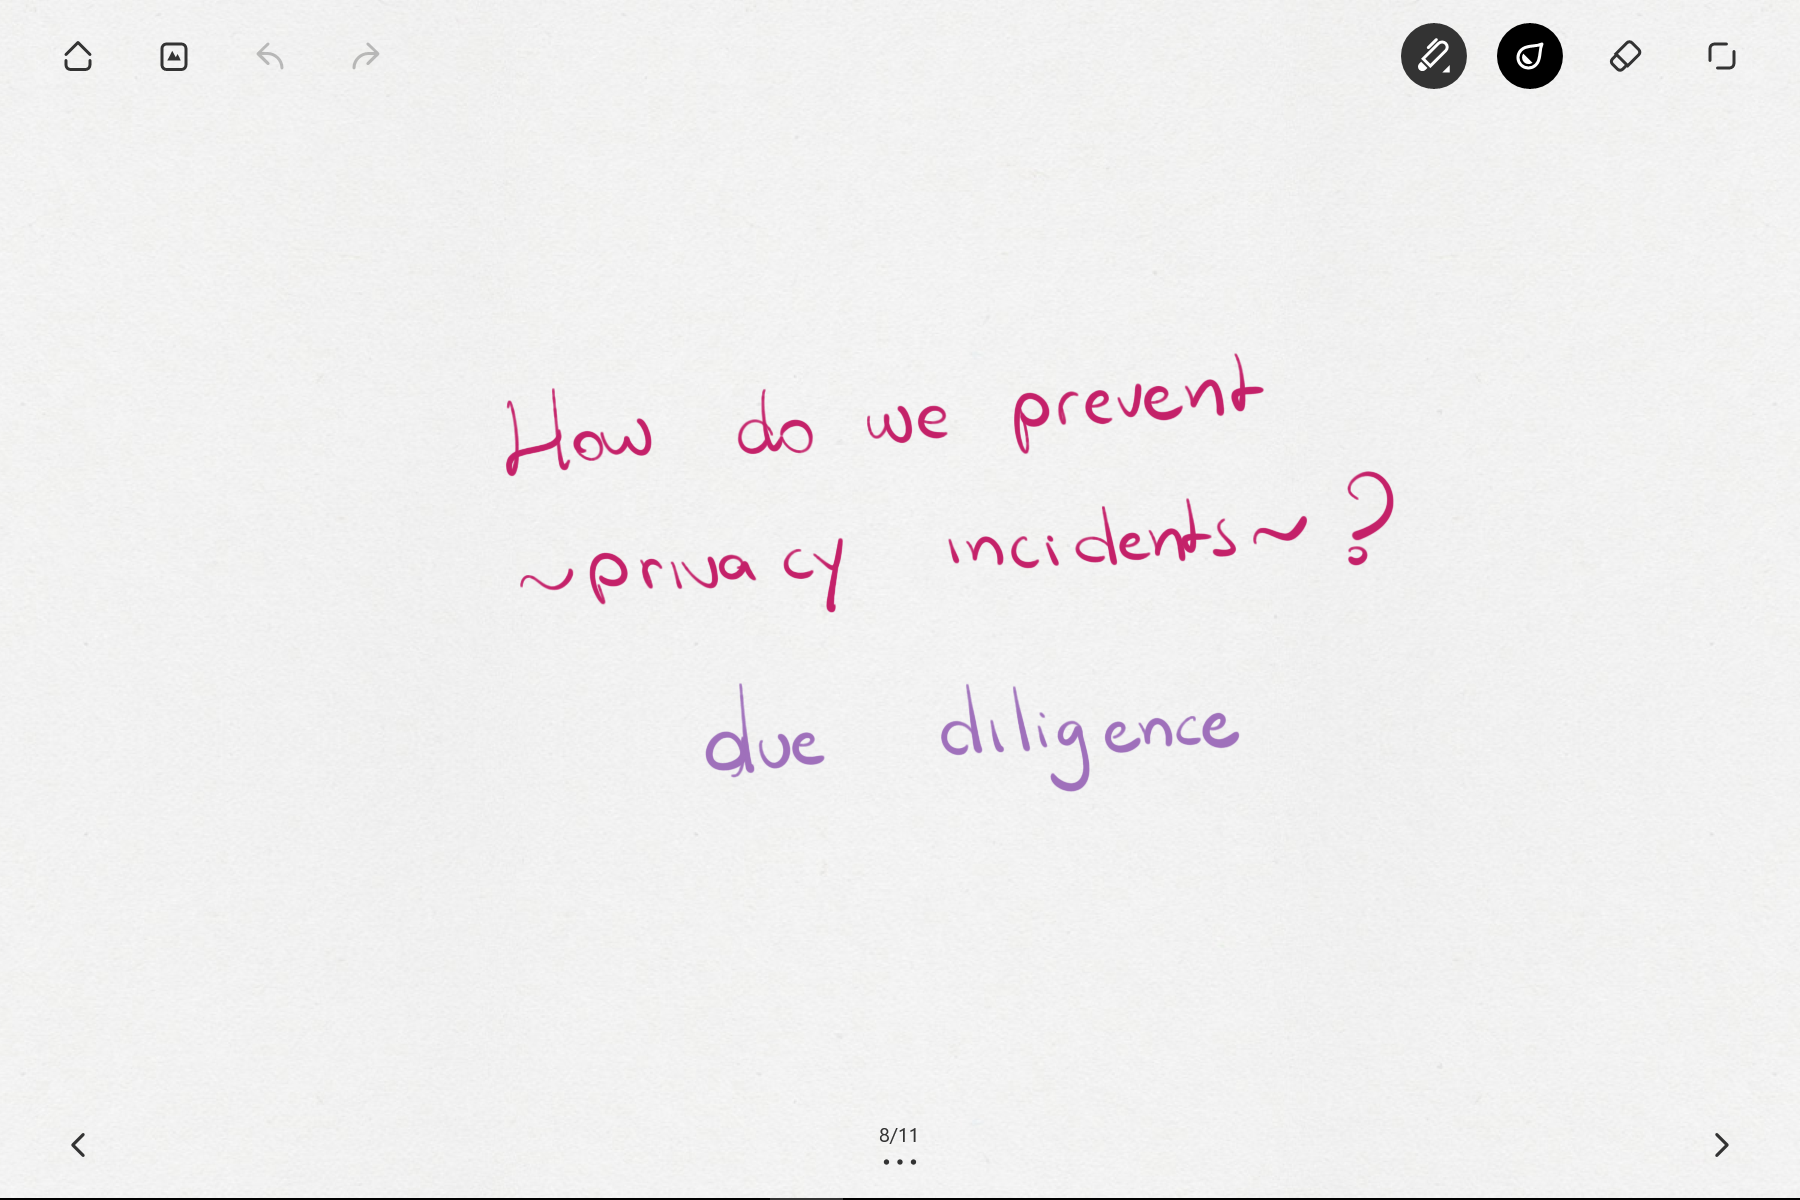 How do we prevent
~privacy incidents~?
due diligence
8/11